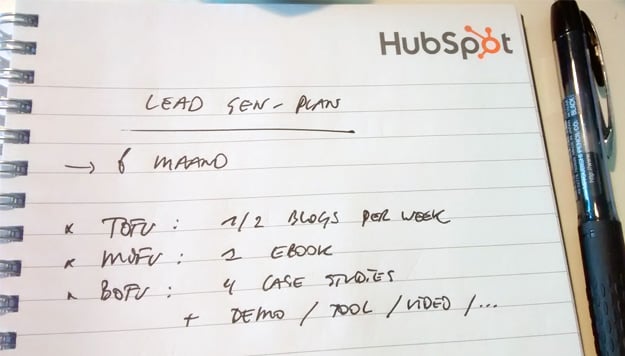 HubSpot
LEAD GEN-PLAN
→ 6 MAAND
x TOFU : 1/2 BLOGS PER WEEK
x MOFU : 1 EBOOK
x BOFU : 4 CASE STUDIES
+ DEMO / TOOL / VIDEO /...